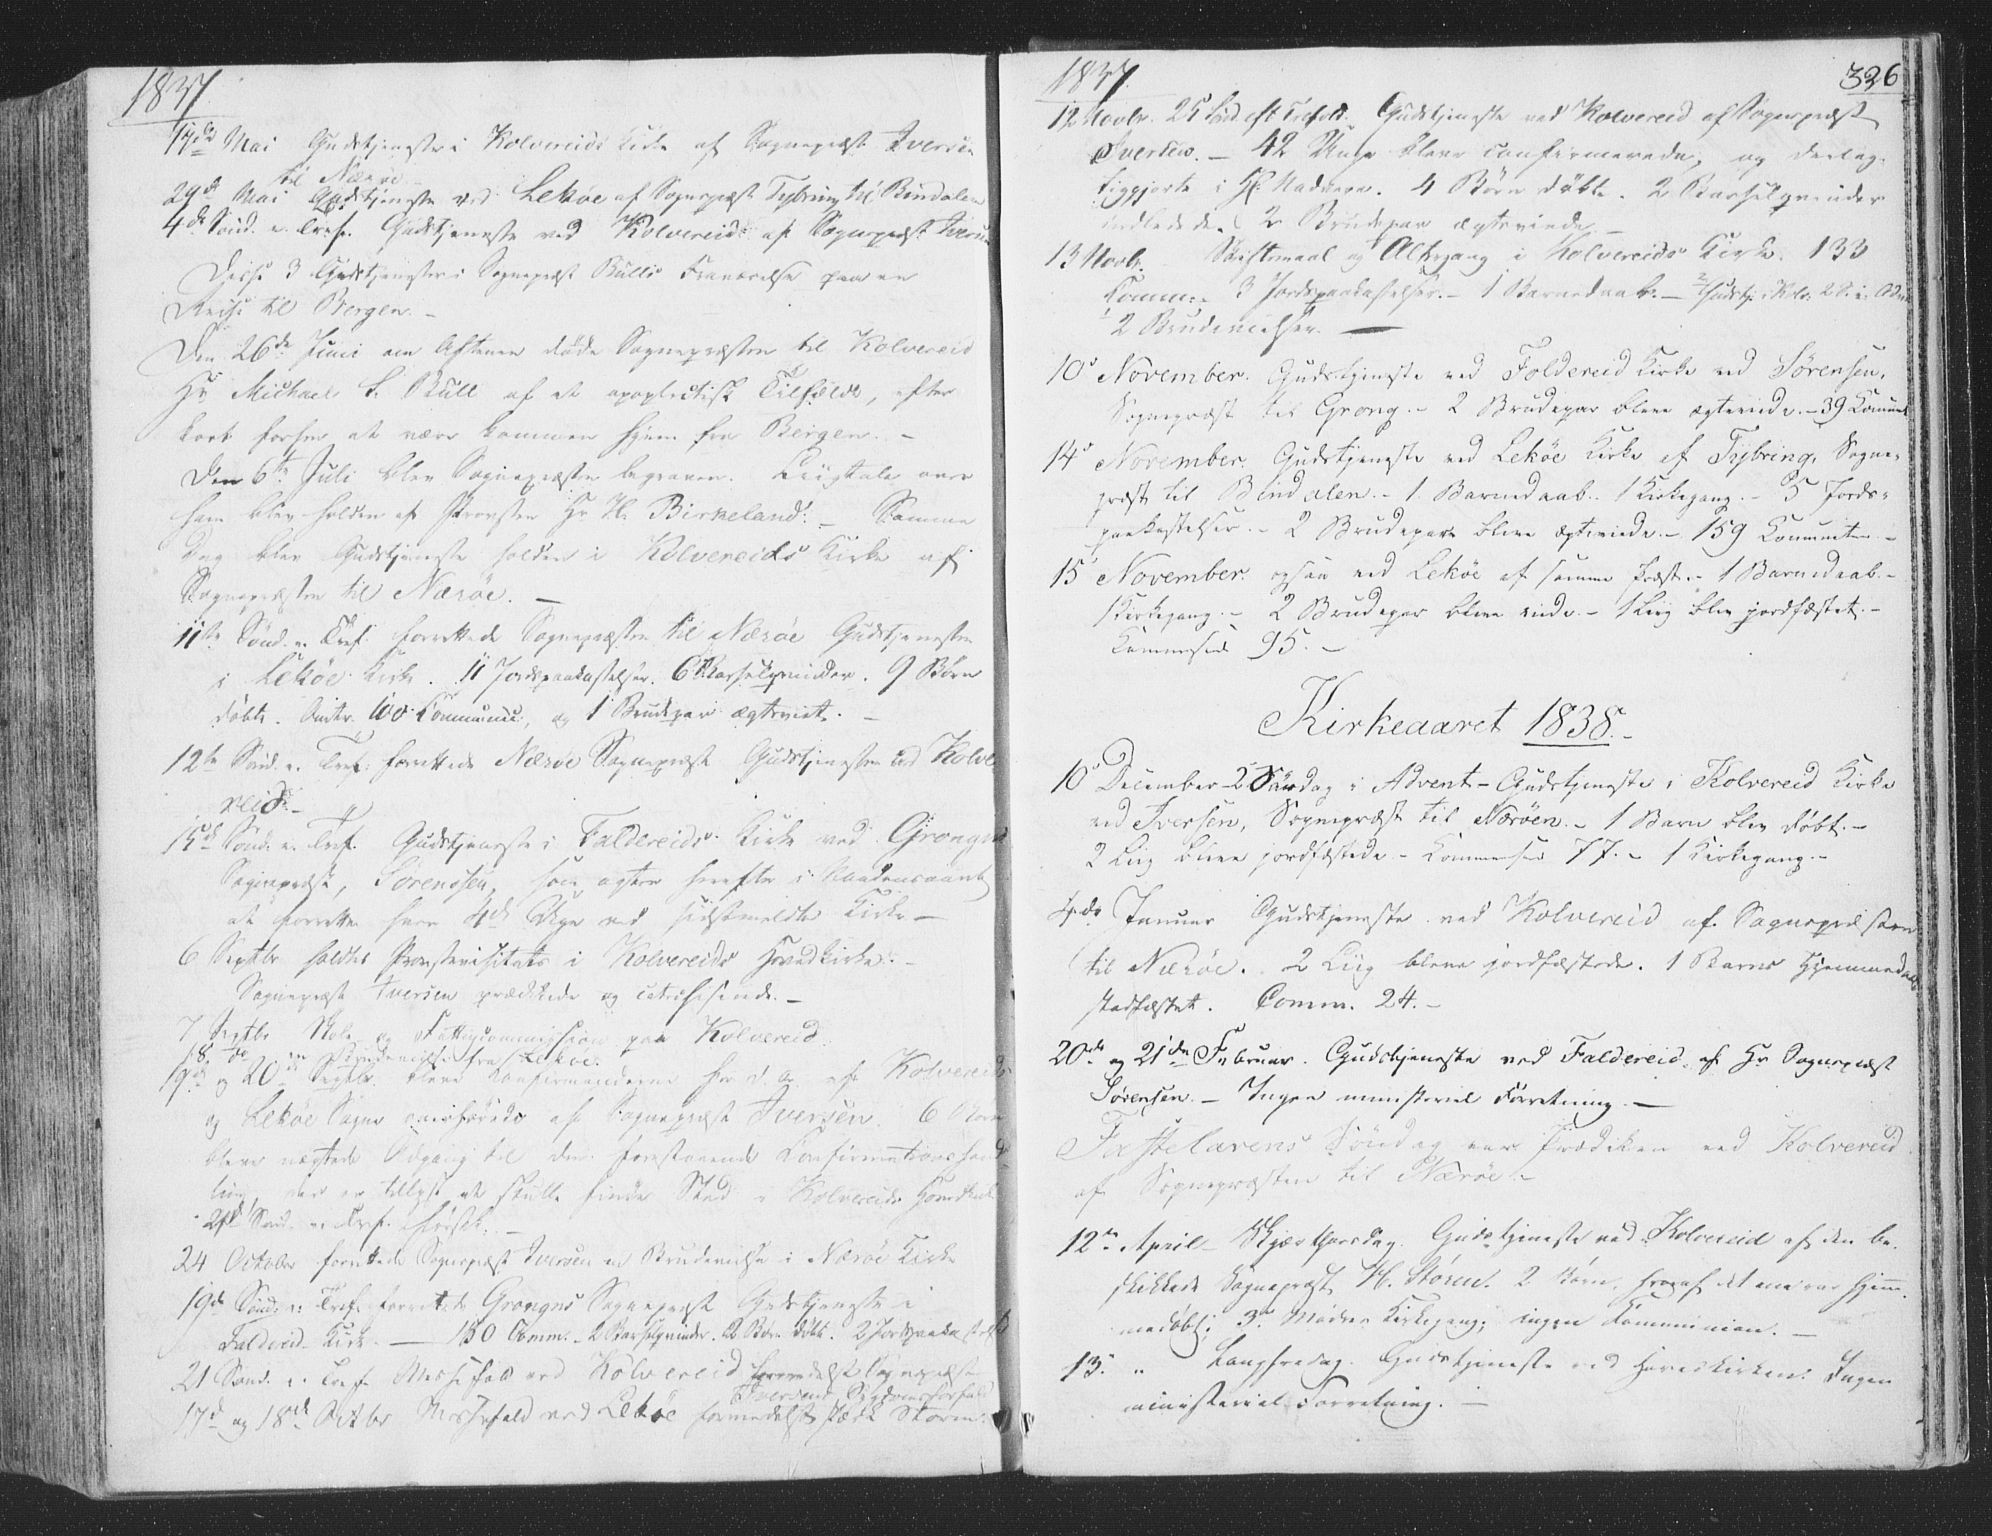 1837.
17de Mai Gudstjeneste i Kolvereids Kirke af Sognepræst Iversen
til Nærøe
29de Mai Gudstjeneste ved Lekøe af Sognepræst Tybring til Bindalen
4de Sønd. e. Tref. Gudstjeneste ved Kolvereid af Sognepræst Iversen
Disse 3 Gudstjenester i Sognepræst Bulls Fraværelse paa en
Reise til Bergen. –
Den 26de Juni om Aftenen døde Sognepræsten til Kolvereid
Hr Michael S. Bull af et apoplectisk Tilfælde, efter
kort forhen at være kommen hjem fra Bergen. –
Den 6te Juli blev Sognepræsten begraven. Liigtale over
ham blev holden af Provsten Hr Birkeland. – Samme
Dag blev Gudstjeneste holden i Kolvereids Kirke af
Sognepræsten til Nærøe. –
11te Sønd. e. Tref. forrettede Sognepræsten til Nærøe Gudstjenesten
i Lekøe Kirke. 11 Jordpaakastelser. 6 Barselqvinder. 9 Børn
døbte. Omtr. 100 Communic., og 1 Brudepar ægteviet. –
12te Sønd. e. Tref. forrettede Nærøe Sognepræst Gudstjenesten ved Kolve
reid. –
15de Sønd. e. Tref. Gudstjeneste i Faldereids Kirke ved Grongns
Sognepræst, Sörenssen, som agter herefter i Naadensaaret
at forrette hver 4de Uge ved sidstmeldte Kirke –
6 Septbr holdtes Provstevisitats i Kolvereids Hovedkirke. –
Sognepræst Iversen prædikede og catechiserede. –
7 Septbr Skole og Fattigcommission paa Kolvereid.
18. do en Brudevielse fra Lekøe.
19de og 20de Septbr. bleve Confirmanderne for d. A. af Kolvereids
og Lekøe Sogne overhørede af Sognepræst Iversen. 6 Børn
bleve nægtede Adgang til den forestaaende Confirmationshand
ling, der er tillyst at skulle finde Sted i Kolvereids Hovedkirke
21de Sønd. e. Tref. førstk. –
24 October forrettede Sognepræst Iversen en Brudevielse i Nærøe Kirke
19de Sønd. e. Tref. forrettede Grongns Sognepræst Gudstjeneste i
Faldereid Kirke. – 150 Comm. – 2 Barselqvinder. 2 Børn døbt. 2 Jordpaakastelser
21 Sønd. e. Tref. Messefald ved Kolvereid formedelst Sognepræst
Iversens Sygdomsforfald
17de og 18de Octbr Messefald ved Lekøe formedelst stærk Storm.
1837.
326
12 Novbr. 25 Sønd. eft. Trefold. Gudstjeneste ved Kolvereid af Sognepræst
Iversen. – 42 Unge bleve confirmerede, og deelag-
tiggjorte i H. Nadvere. 4 Børn døbte. 2 Barselqvinder
indledede. 2 Brudepar ægteviede. –
13 Novbr. Skriftemaal og Altergang i Kolvereids Kirke. 133
Comm. – 3 Jordpaakastelser. – 1 Barnedaab. –
2 Brudevielser. –
10de November. Gudstjeneste ved Foldereid Kirke ved Sørensen,
Sognepræst til Grong. – 2 Brudepar bleve ægteviede. – 39 Communi
14de November. Gudstjeneste ved Lekøe Kirke af Tybring, Sogne-
præst til Bindalen. – 1 Barnedaab. 1 Kirkegang. – 5 Jords-
paakastelser. – 2 Brudepare bleve ægteviede. – 159 Communicen. –
15de November. ogsaa ved Lekøe af samme Præst. – 1 Barnedaab. –
1 Kirkegang. – 2 Brudepar bleve viede. – 1 Liig blev jordfæstet. –
Communic 95. –
Kirkeaaret 1838. –
10de December – 2 Søndag i Advent – Gudstjeneste i Kolvereid Kirke
ved Iversen, Sognepræst til Nærøen. – 1 Barn blev døbt. –
2 Liig bleve jordfæstede – Communic 77. – 1 Kirkegang. –
4de Januar Gudstjeneste ved Kolvereid af Sognepræsten
til Nærøe. 2 Liig bleve jordfæstede. 1 Barns Hjemmedaab
stadfæstet. Comm. 24. –
20de og 21de Februar. Gudstjeneste ved Faldereid, af Hr Sognepræst
Sørensen. – Ingen ministeriel Forretning. –
Fastelavens Søndag var Prædiken ved Kolvereid
af Sognepræsten til Nærøe. –
12te April – Skjærthorsdag. Gudstjeneste ved Kolvereid af den be-
skikkede Sognepræst, H. Støren. 2 Børn, hvoraf det ene var hjem-
medøbt; 3 Mødres Kirkegang; ingen Communion. –
13. " Langfredag. Gudstjeneste ved Hovedkirken: Ingen
ministeriel Forretning. –